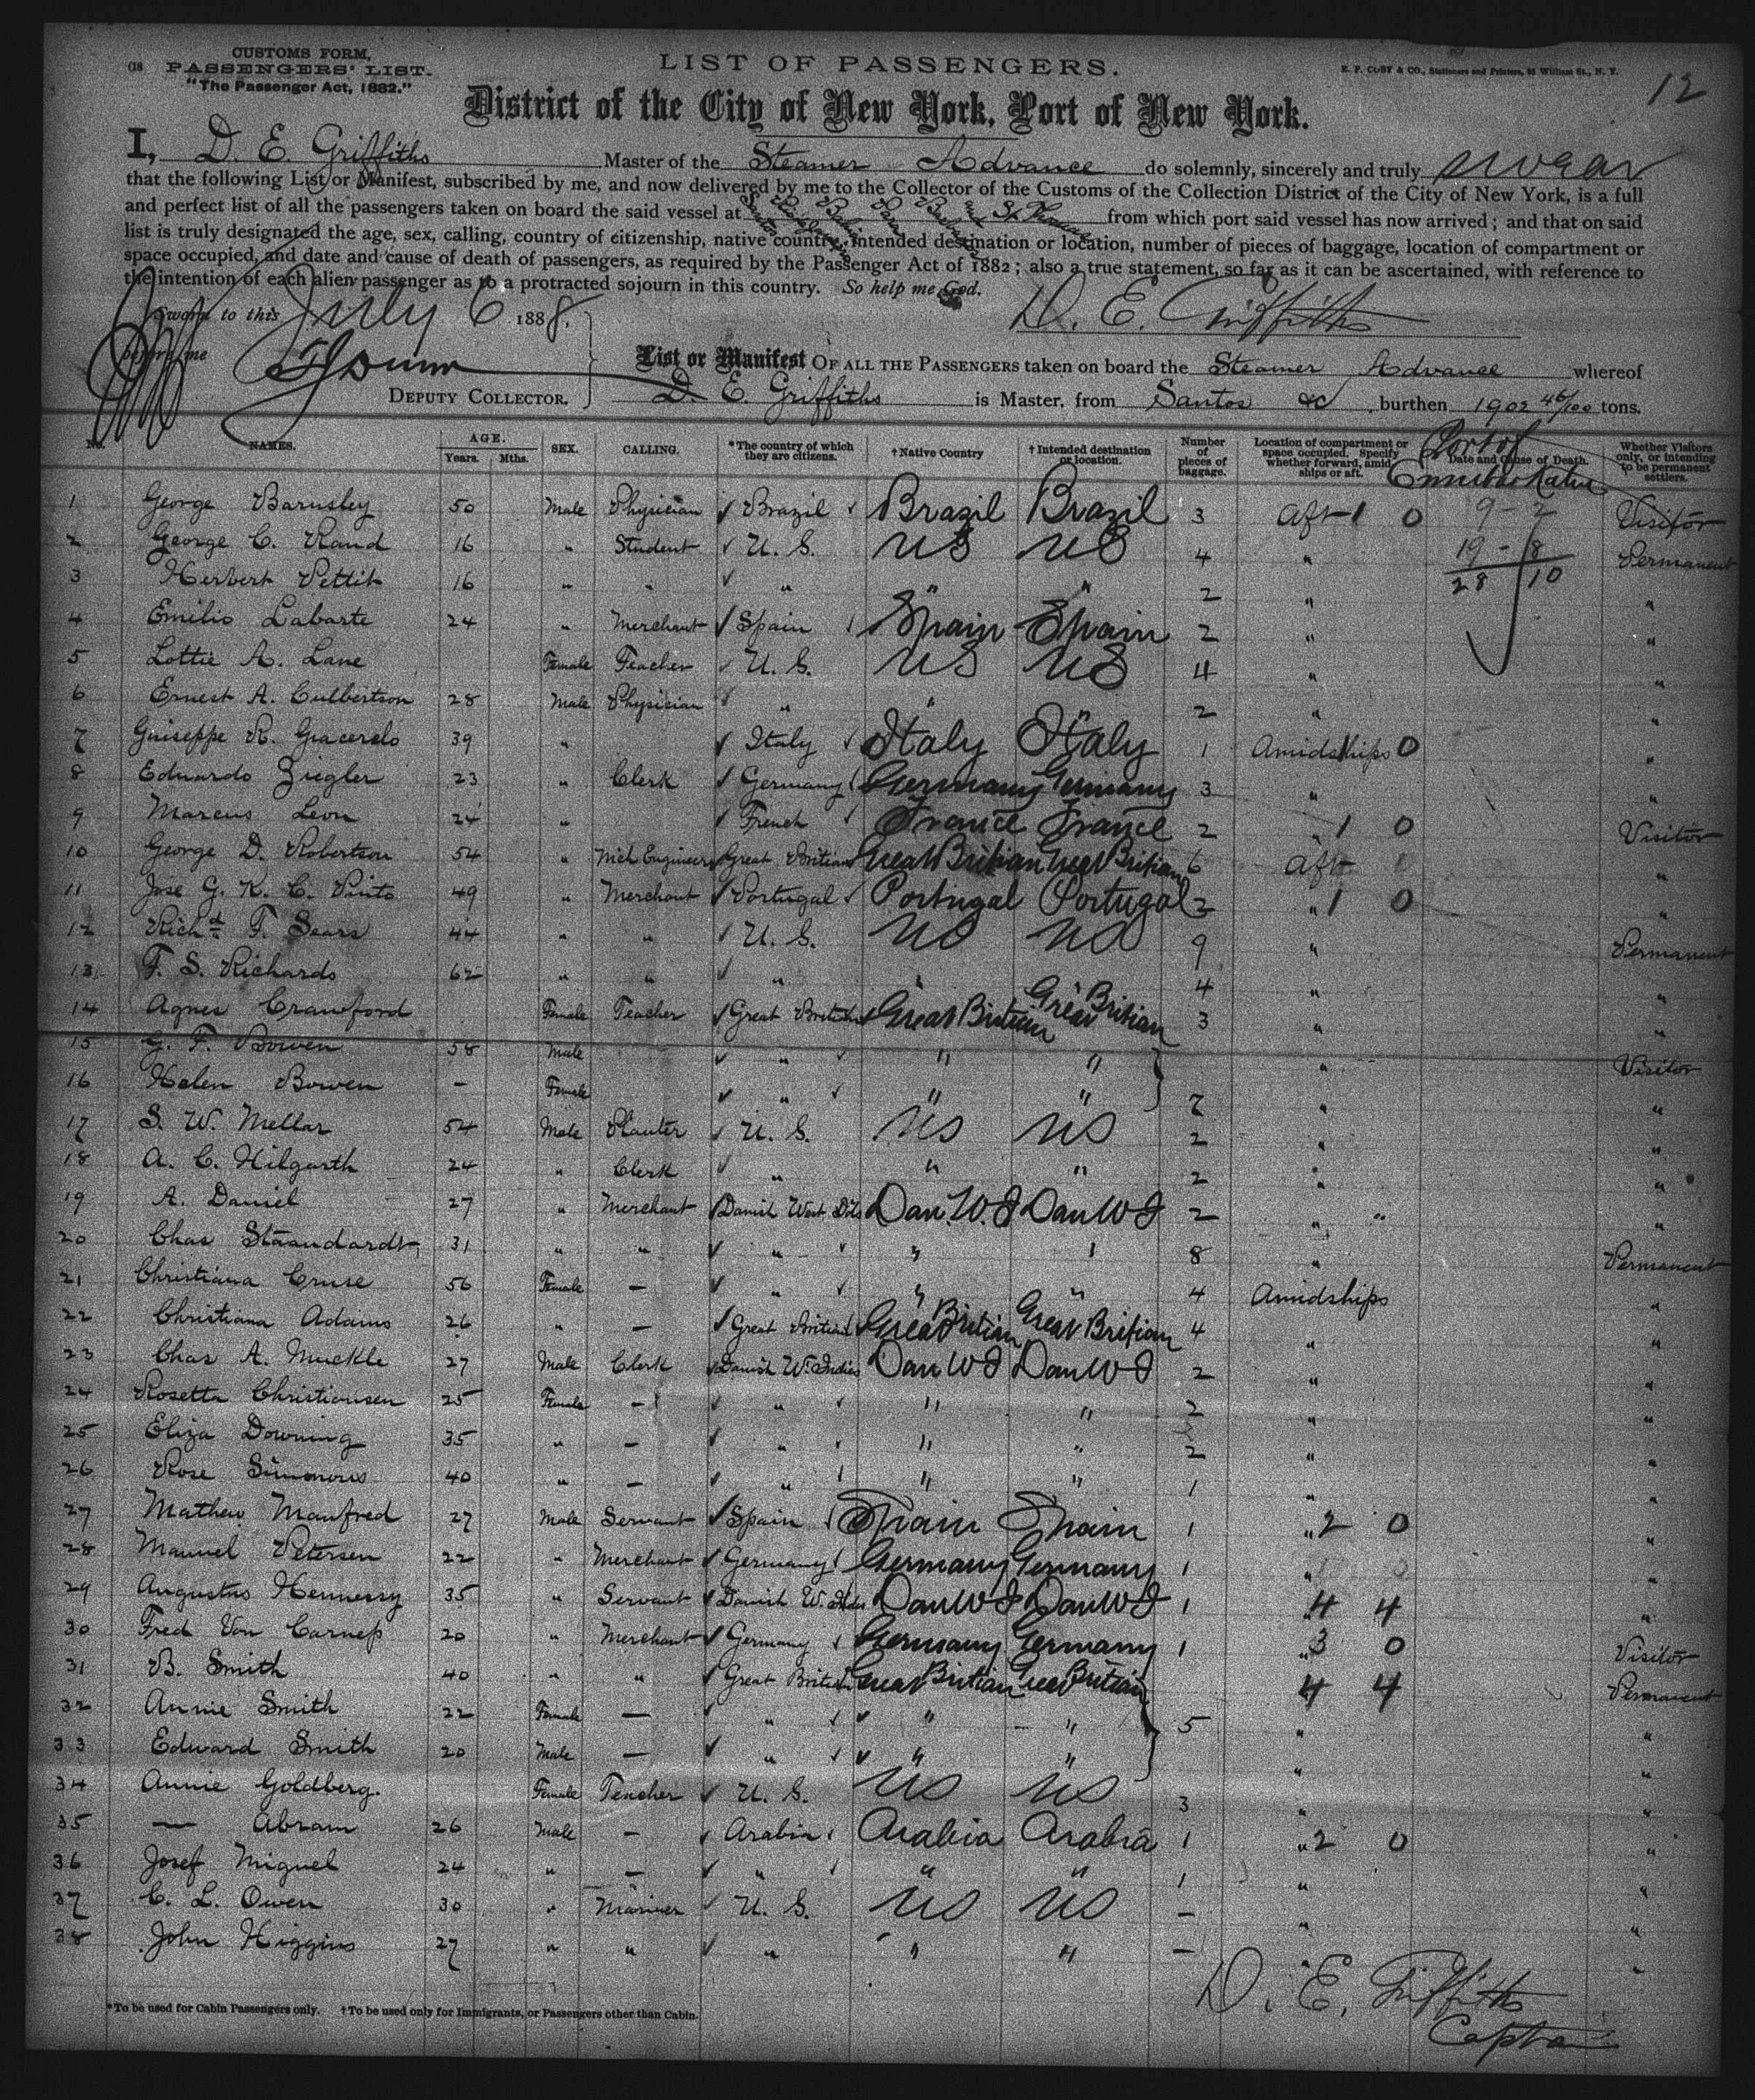 CUSTOMS FORM,
PASSENGERS' LIST.
"The Passenger Act, 1882."
LIST OF PASSENGERS.
E. P. COBY & CO., Stationers and Printers, William St., N. Y.
12
District of the City of New York, Port of New York.
I, D. E. Griffiths Master of the Steamer Advance do solemnly, sincerely and truly swear
that the following List or Manifest, subscribed by me, and now delivered by me to the Collector of the Customs of the Collection District of the City of New York, is a full
and perfect list of all the passengers taken on board the said vessel at Santos Bahia Para and St Thomas from which port said vessel has now arrived; and that on said
list is truly designated the age, sex, calling, country of citizenship, native country, intended destination or location, number of pieces of baggage, location of compartment or
space occupied, and date and cause of death of passengers, as required by the Passenger Act of 1882; also a true statement, so far as it can be ascertained, with reference to
the intention of each alien passenger as to a protracted sojourn in this country. So help me God.
Sworn to this July 6 1888. D. E. Griffiths
before me
List or Manifest OF ALL THE PASSENGERS taken on board the Steamer Advance whereof
DEPUTY COLLECTOR. D. E. Griffiths is Master, from Santos &c burthen 1902 46/100 tons.
No. NAMES. AGE. Years. Mths. SEX. CALLING. *The country of which they are citizens. †Native Country †Intended destination or location. Number of pieces of baggage. Location of compartment or space occupied. Specify whether forward, amidships or aft. Date and Cause of Death. Port of Embarkation Whether Visitors only, or intending to be permanent settlers.
1 George Barnsley 50 Male Physician Brazil Brazil Brazil 3 Aft 1 0 9-2 Visitor
2 George C. Rand 16 " Student U. S. US US 4 " 19-8 Permanent
3 Herbert Pettit 16 " " " " " 2 " 28 10 "
4 Emilio Labarte 24 " Merchant Spain Spain Spain 2 " "
5 Lottie A. Lane Female Teacher U. S. US US 4 " "
6 Ernest A. Culbertson 28 Male Physician " " " 2 " "
7 Guiseppe R. Giacerelo 39 " Italy Italy Italy 1 Amidships 1 0 "
8 Eduardo Ziegler 23 " Clerk Germany Germany Germany 3 " "
9 Marcus Leon 24 " French France France 2 " 1 0 Visitor
10 George D. Robertson 54 " Mch Engineer Great Britian Great Britian Great Britian 6 Aft "
11 Jose G. K. C. Pinto 49 " Merchant Portugal Portugal Portugal 2 " 1 0 "
12 Richd F. Sears 44 " " U. S. US US 9 " Permanent
13 F. S. Richards 62 " " " " " 4 " "
14 Agnes Crawford Female Teacher Great Britian Great Britian Great Britian 3 " "
15 G. F. Bowen 58 Male " " " " Visitor
16 Helen Bowen - Female " " " 7 " "
17 S. W. Mellar 54 Male Planter U. S. US US 2 " "
18 A. C. Hilgarth 24 " Clerk " " " 2 " "
19 A. Daniel 27 " Merchant Danish West Inds Dan. W. I Dan W I 2 " " "
20 Chas Staandardt 31 " " " " " 8 " Permanent
21 Christiana Cruse 56 Female - " " " 4 Amidships "
22 Christiana Adams 26 " - Great Britian Great Britian Great Britian 4 " "
23 Chas A. Muckle 27 Male Clerk Danish W. Indies Dan W I Dan W I 2 " "
24 Rosetta Christiansen 25 Female - " " " 2 " "
25 Eliza Downing 35 " - " " " 2 " "
26 Rose Simmons 40 " - " " " 1 " "
27 Mathew Manfred 27 Male Servant Spain Spain Spain 1 " 2 0 "
28 Manuel Petersen 22 " Merchant Germany Germany Germany 1 " "
29 Augustus Hennessy 35 " Servant Danish W. Indies Dan W I Dan W I 1 " 4 4 "
30 Fred Von Carnep 20 " Merchant Germany Germany Germany 1 " 3 0 Visitor
31 B. Smith 40 " " Great Britian Great Britian Great Britian 4 4 Permanent
32 Annie Smith 22 Female - " " " 5 " "
33 Edward Smith 20 Male - " " " " "
34 Annie Goldberg. Female Teacher U. S. US US 3 " "
35 - Abram 26 Male - Arabia Arabia Arabia 1 " 2 0 "
36 Josef Miguel 24 " - " " " 1 " "
37 C. L. Owen 30 " Mariner U. S. US US - " "
38 John Higgins 27 " " " " " - " "
D. E. Griffiths
Captain
*To be used for Cabin Passengers only. †To be used only for Immigrants, or Passengers other than Cabin.